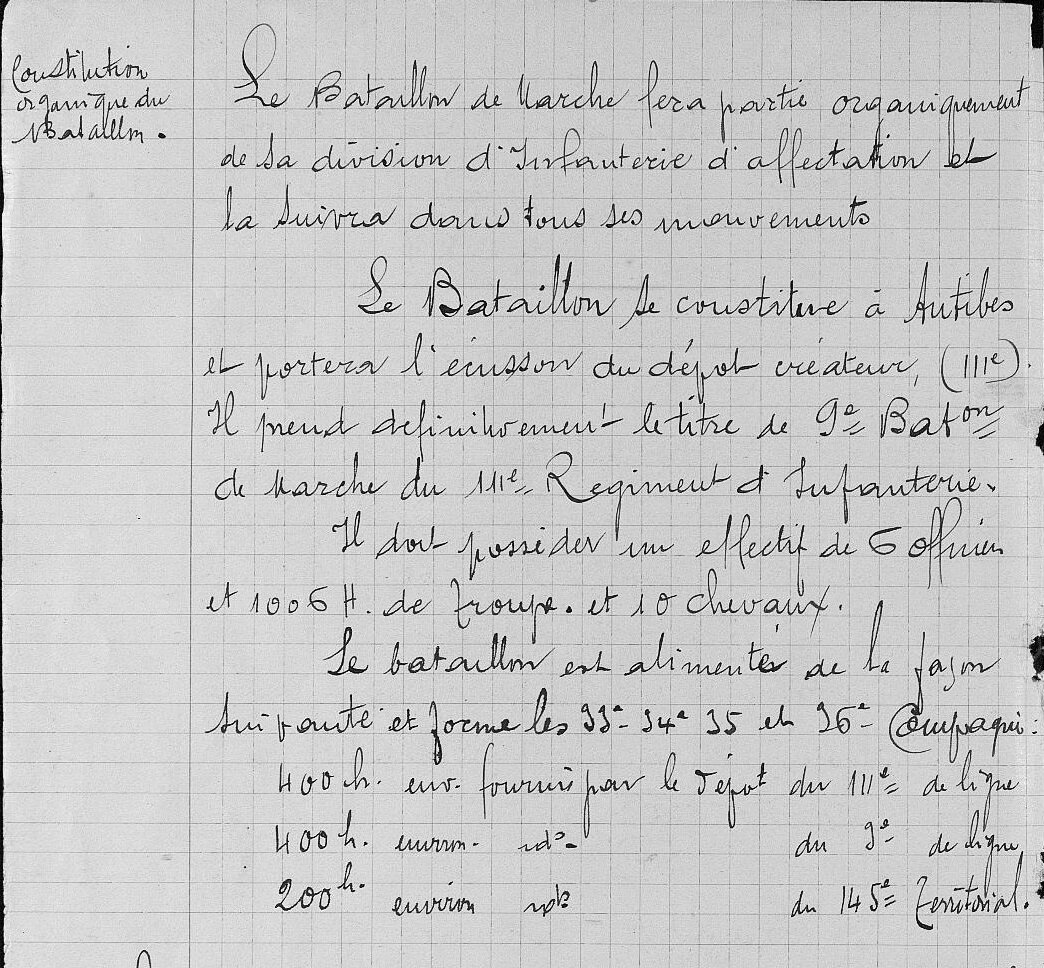 Constitution
organique du
Bataillon.
Le Bataillon de Marche fera partie organiquement
de sa division d'Infanterie d'affectation et
la suivra dans tous ses mouvements
Le Bataillon se constitue à Antibes
et portera l'écusson du dépot créateur, (111e).
Il prend definitivement le titre de 9e Baton
de Marche du 111e Regiment d'Infanterie.
Il doit posséder un effectif de 6 officiers
et 1006 H. de troupe. et 10 chevaux.
Le bataillon est alimenté de la façon
suivante et forme les 33e 34e 35 et 36e Compagnie:
400 h. env. fournis par le dépot du 111e de ligne
400 h. environ. id° du 9e de ligne
200 h. environ id° du 145e Territorial.